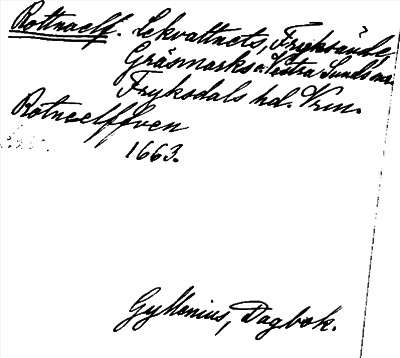 Rottnaelf. Lekvattnets, Fryksände,
Gräsmarks o. Vestra Sunds snr.
Fryksdals hd. Vrm.
Rotnaelffven
1663.
Gyllenius, Dagbok.